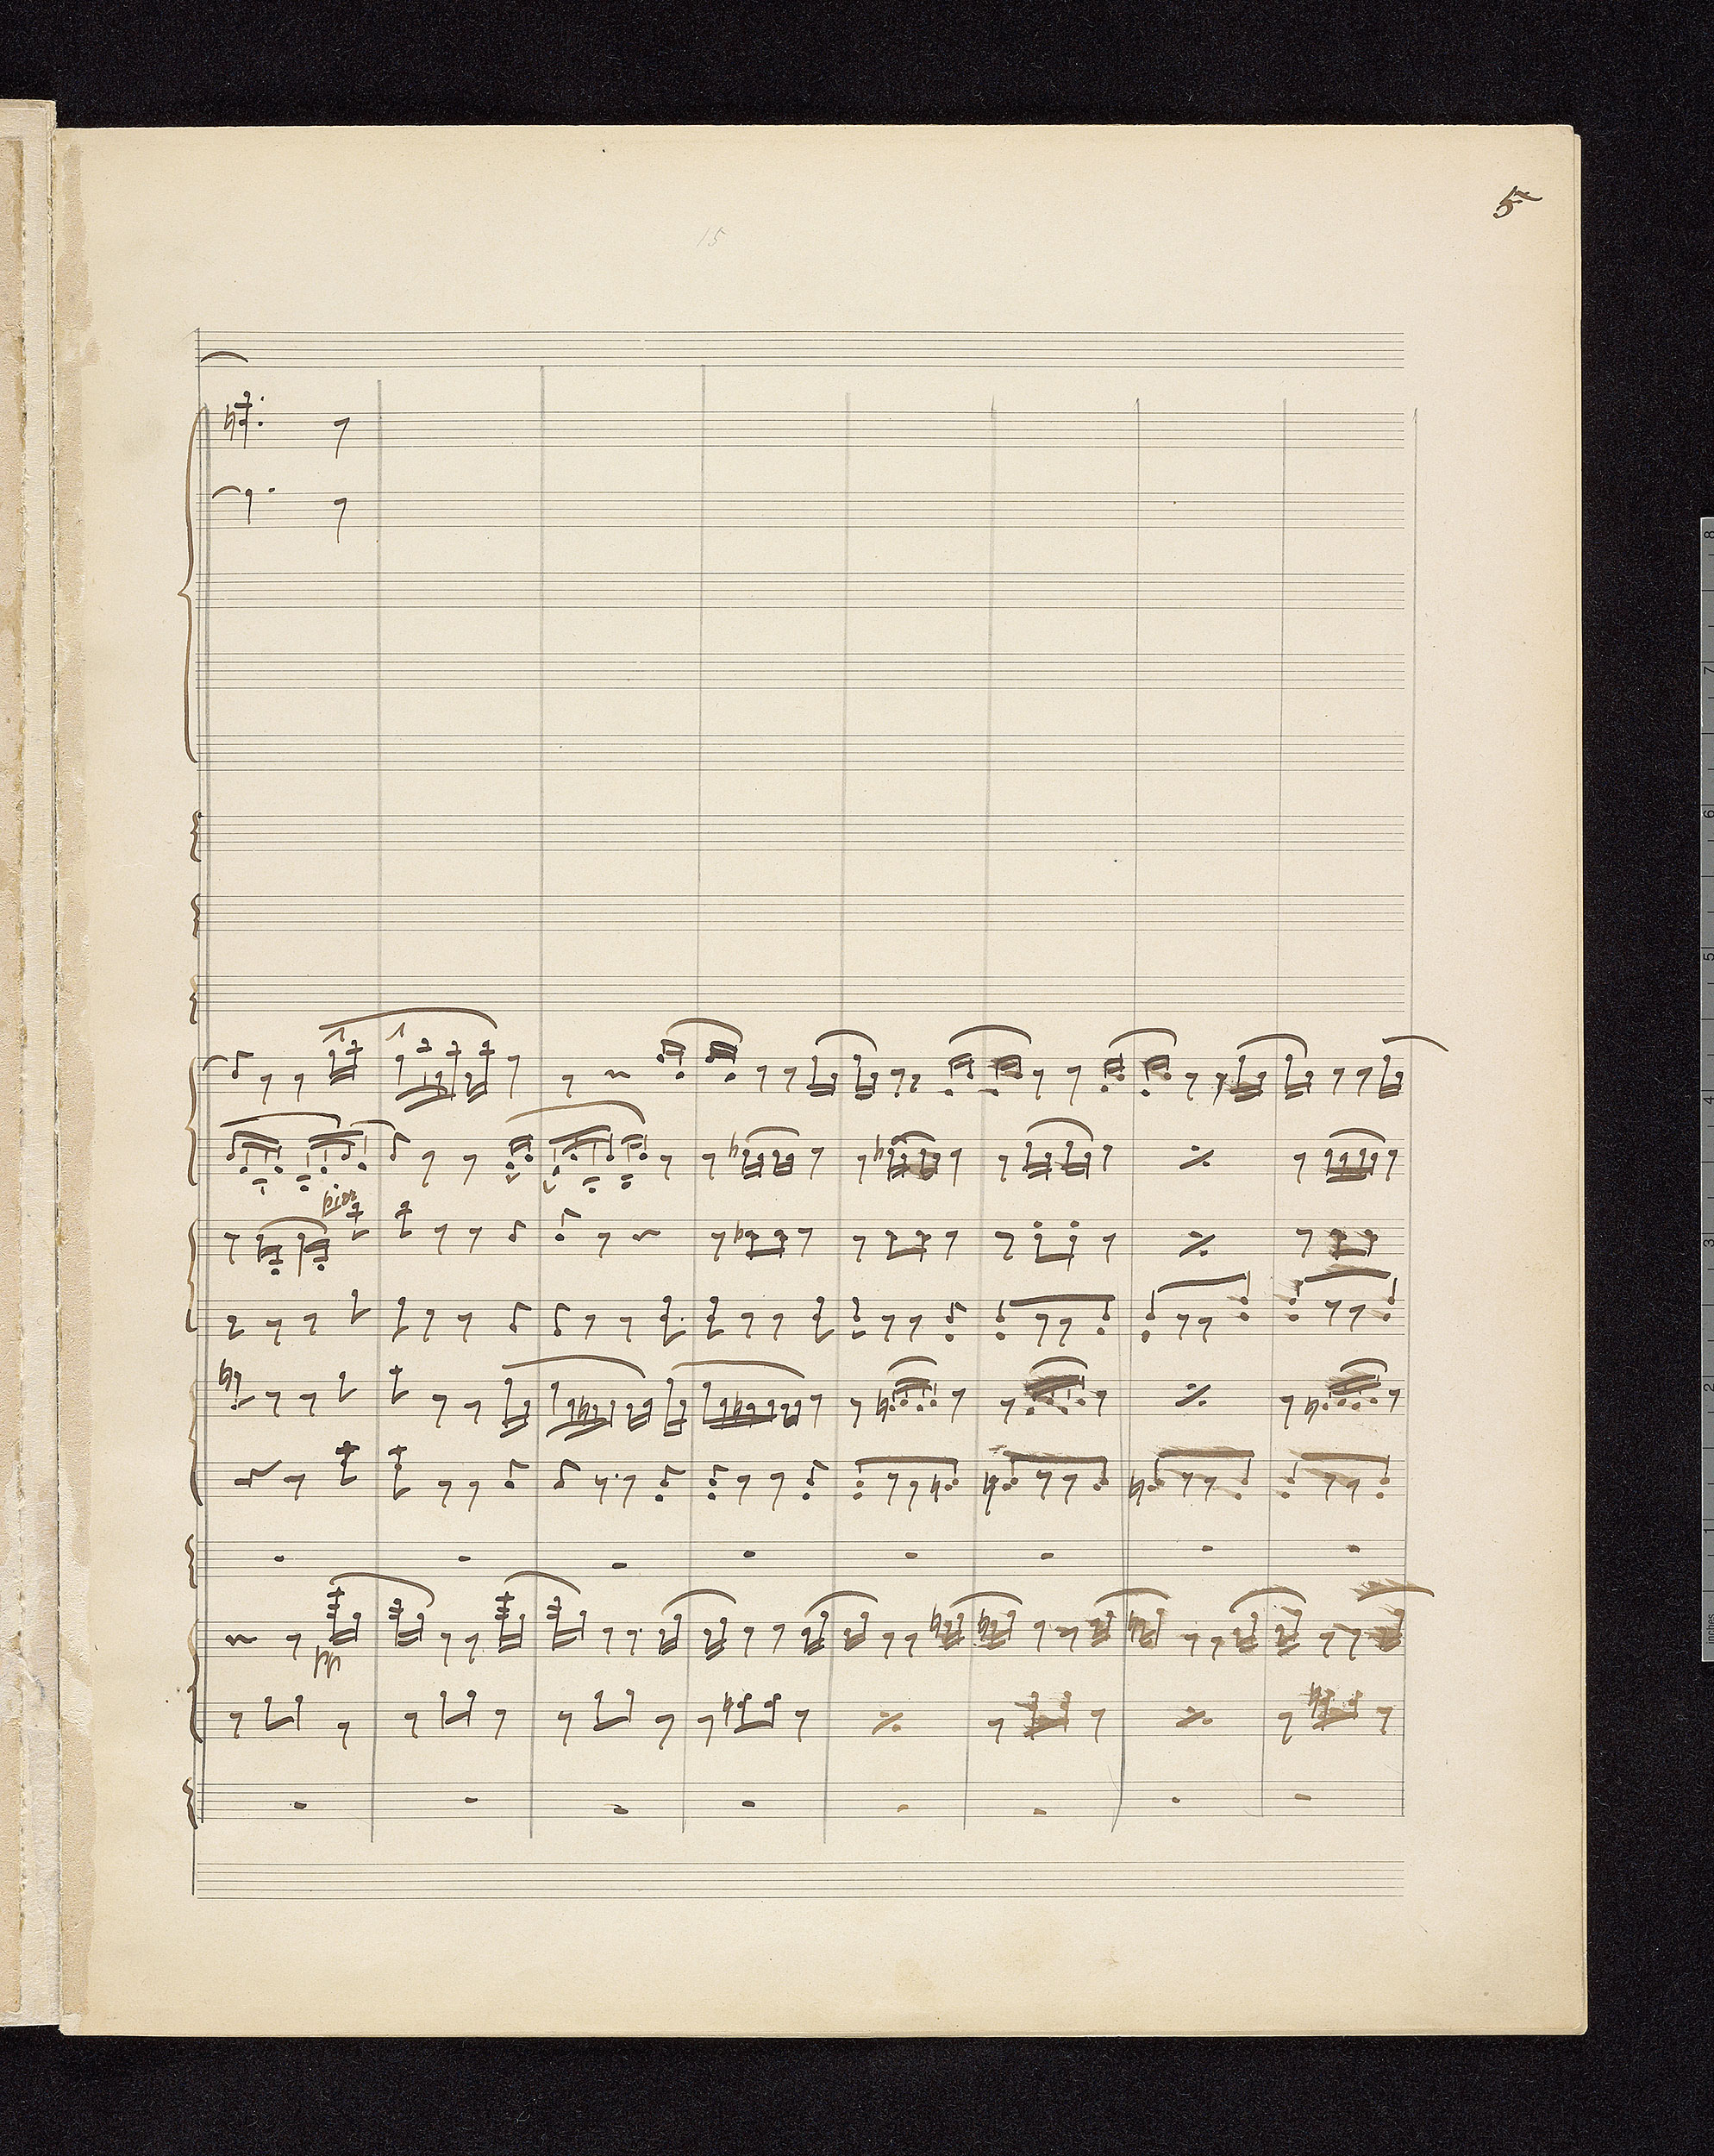 5
15
pizz
8
7
6
5
4
3
2
1
inches